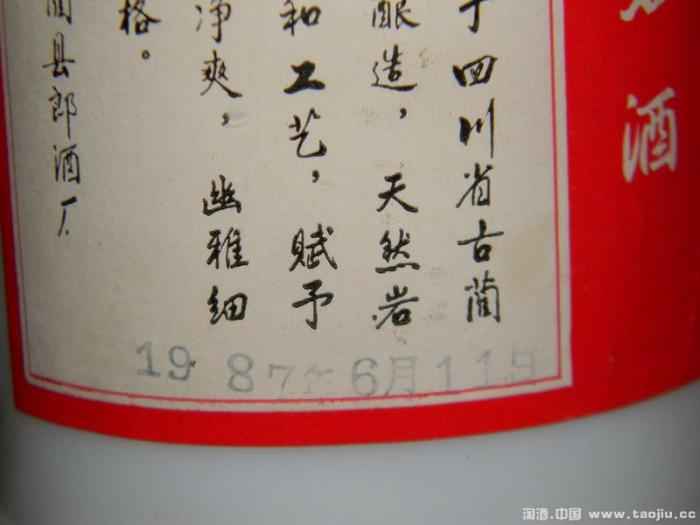 酒
于四川省古蔺
酿造，天然岩
和工艺，赋予
净爽，幽雅细
格。
蔺县郎酒厂
1987年6月11日
淘酒.中国 www.taojiu.cc